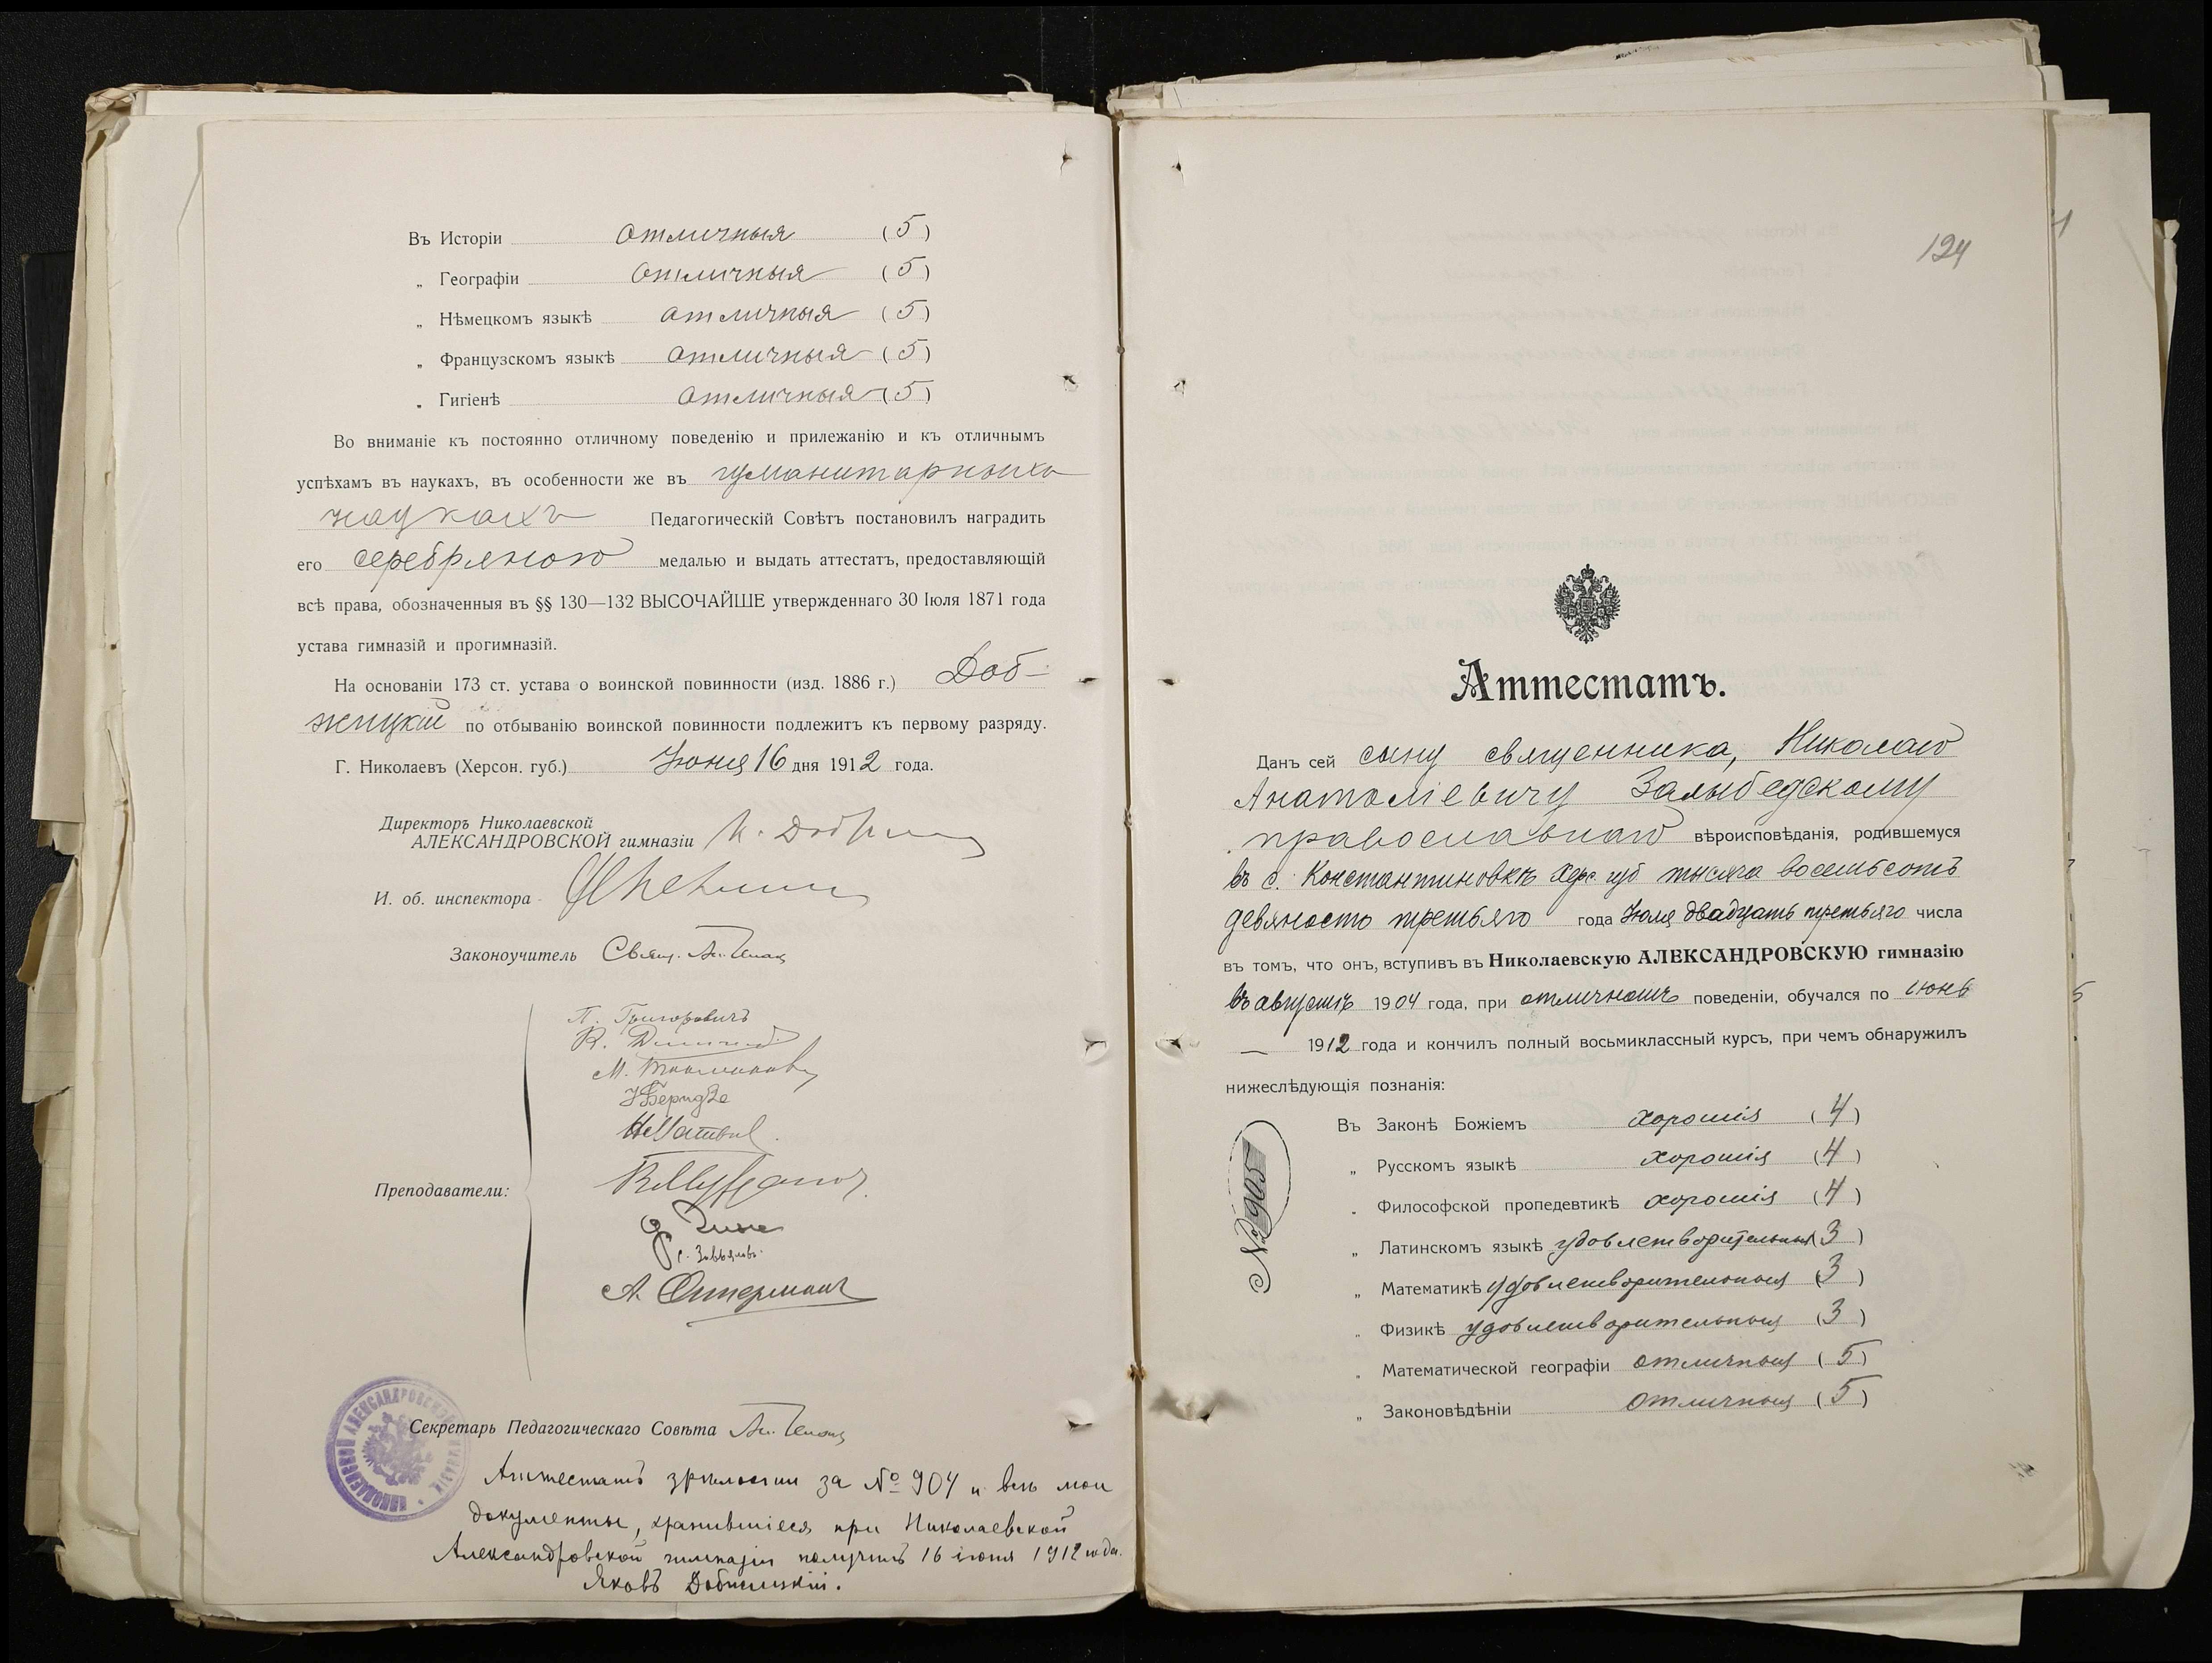 Въ Исторіи отличныя (5)
„ Географіи отличныя (5)
„ Нѣмецкомъ языкѣ отличныя (5)
„ Французскомъ языкѣ отличныя (5)
„ Гигіенѣ отличныя (5)
Во вниманіе къ постоянно отличному поведенію и прилежанію и къ отличнымъ
успѣхамъ въ наукахъ, въ особенности же въ гуманитарныхъ
наукахъ Педагогическій Совѣтъ постановилъ наградить
его серебряною медалью и выдать аттестатъ, предоставляющій
всѣ права, обозначенныя въ §§ 130—132 ВЫСОЧАЙШЕ утвержденнаго 30 Іюля 1871 года
устава гимназій и прогимназій.
На основаніи 173 ст. устава о воинской повинности (изд. 1886 г.) Доб-
жицкій по отбыванію воинской повинности подлежитъ къ первому разряду.
Г. Николаевъ (Херсон. губ.) Іюня 16 дня 1912 года.
Директоръ Николаевской
АЛЕКСАНДРОВСКОЙ гимназіи
И. об. инспектора
Законоучитель Свящ.
П. Григоровичъ
Преподаватели:
С. Завьяловъ.
Секретарь Педагогическаго Совѣта
НИКОЛАЕВСКОЙ АЛЕКСАНДРОВСКОЙ ГИМНАЗІИ
Аттестатъ зрѣлости за № 904 и всѣ мои
документы, хранившіеся при Николаевской
Александровской гимназіи получилъ 16 іюня 1912 года.
Яковъ Добжицкій.
124
Аттестатъ.
Данъ сей сыну священника, Николаю
Анатоліевичу Залыбедскому
православнаго вѣроисповѣданія, родившемуся
въ с. Константиновкѣ Херс. губ тысяча восемьсотъ
девяносто третьяго года Іюля двадцать третьяго числа
въ томъ, что онъ, вступивъ въ Николаевскую АЛЕКСАНДРОВСКУЮ гимназію
въ августѣ 1904 года, при отличномъ поведеніи, обучался по іюнь
— 1912 года и кончилъ полный восьмиклассный курсъ, при чемъ обнаружилъ
нижеслѣдующія познанія:
Въ Законѣ Божіемъ хорошія (4)
„ Русскомъ языкѣ хорошія (4)
„ Философской пропедевтикѣ хорошія (4)
„ Латинскомъ языкѣ удовлетворительныя (3)
„ Математикѣ удовлетворительныя (3)
„ Физикѣ удовлетворительныя (3)
„ Математической географіи отличныя (5)
„ Законовѣдѣніи отличныя (5)
№ 905